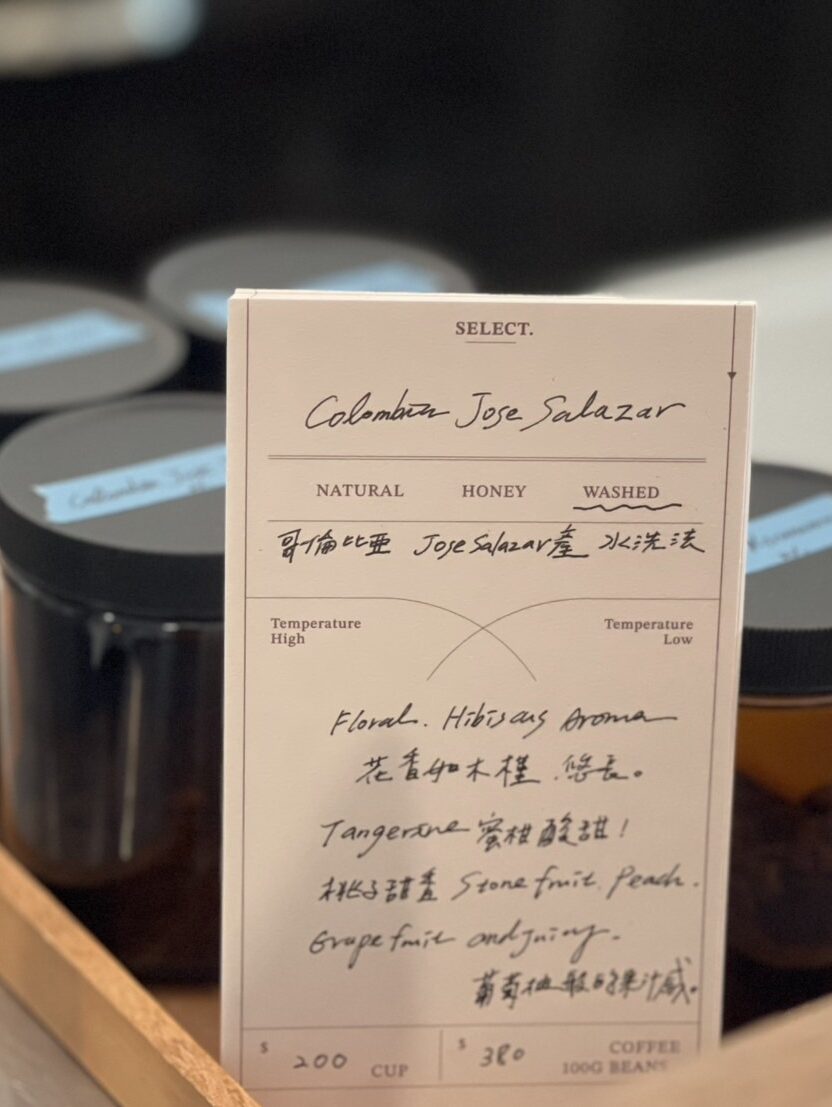 SELECT.
Colombia Jose Salazar
NATURAL HONEY WASHED
哥倫比亞 Jose Salazar產 水洗法
Temperature High
Temperature Low
Floral. Hibiscus Aroma
花香如木槿.悠長。
Tangerine 蜜柑酸甜!
桃子甜香 Stone fruit. Peach.
Grapefruit and juicy.
葡萄柚般的果汁感。
$ 200 CUP
$ 380 COFFEE 100G BEANS
Colombia